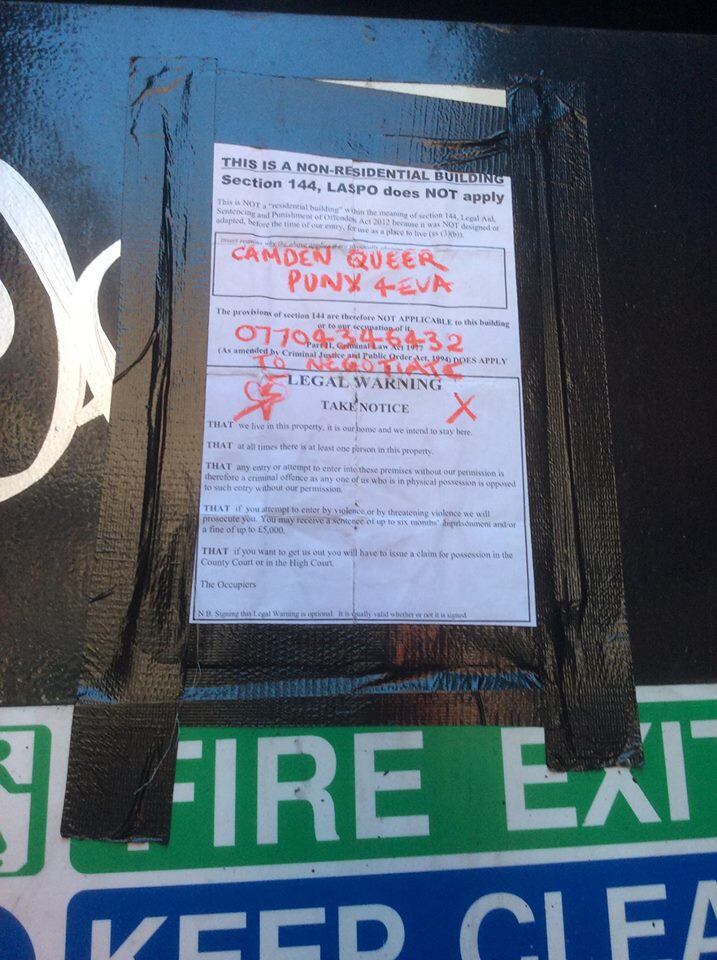 THIS IS A NON-RESIDENTIAL BUILDING
Section 144, LASPO does NOT apply
This is NOT a "residential building" within the meaning of section 144, Legal Aid,
Sentencing and Punishment of Offenders Act 2012 because it was NOT designed or
adapted, before the time of our entry, for use as a place to live (ss (3)(b)).
CAMDEN QUEER
PUNX 4-EVA
The provisions of section 144 are therefore NOT APPLICABLE to this building
or to our occupation of it.
07704346432
Part II, Criminal Law Act 1977
(As amended by Criminal Justice and Public Order Act, 1994) DOES APPLY
TO NEGOTIATE
LEGAL WARNING
TAKE NOTICE
X
THAT we live in this property, it is our home and we intend to stay here.
THAT at all times there is at least one person in this property.
THAT any entry or attempt to enter into these premises without our permission is
therefore a criminal offence as any one of us who is in physical possession is opposed
to such entry without our permission.
THAT if you attempt to enter by violence or by threatening violence we will
prosecute you. You may receive a sentence of up to six months' imprisonment and/or
a fine of up to £5,000.
THAT if you want to get us out you will have to issue a claim for possession in the
County Court or in the High Court.
The Occupiers
N.B. Signing this Legal Warning is optional. It is equally valid whether or not it is signed.
FIRE EXIT
KEEP CLEA